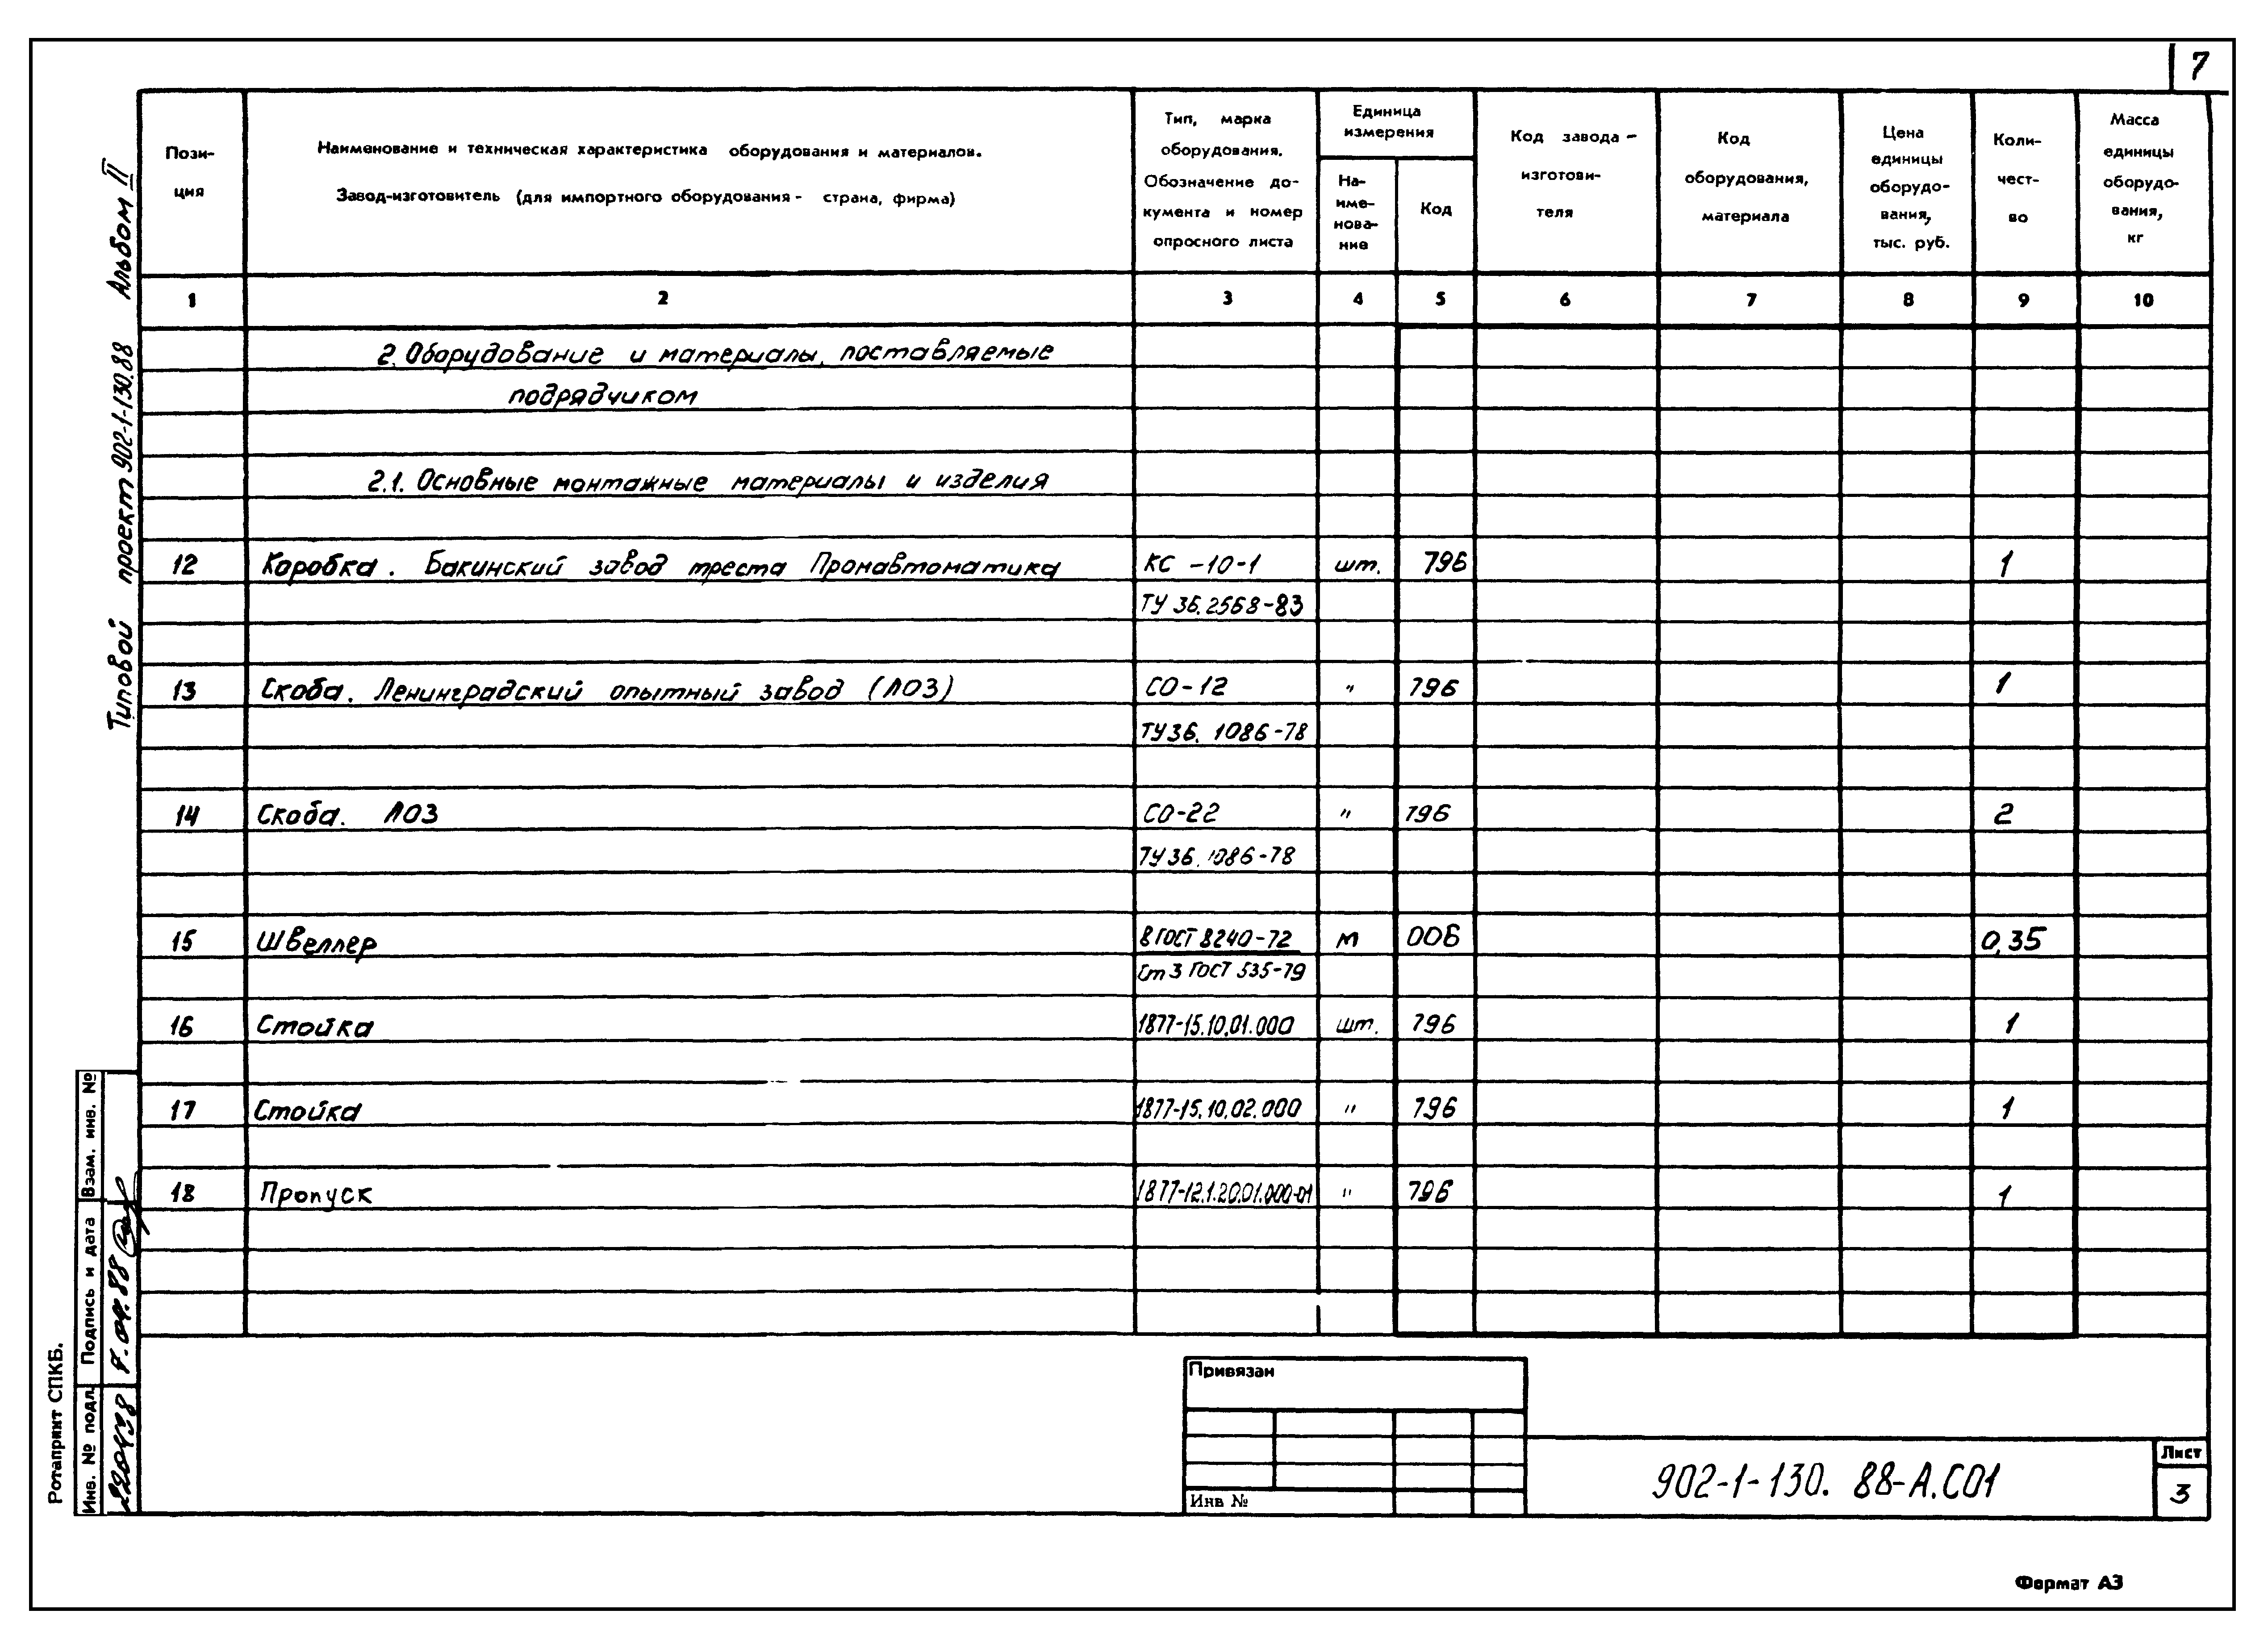 7
Пози-
ция
Наименование и техническая характеристика оборудования и материалов.
Завод-изготовитель (для импортного оборудования - страна, фирма)
Тип, марка
оборудования.
Обозначение до-
кумента и номер
опросного листа
Единица
измерения
На-
име-
нова-
ние
Код
Код завода -
изготови-
теля
Код
оборудования,
материала
Цена
единицы
оборудо-
вания,
тыс. руб.
Коли-
чест-
во
Масса
единицы
оборудо-
вания,
кг
1 2 3 4 5 6 7 8 9 10
2. Оборудование и материалы, поставляемые
подрядчиком
2.1. Основные монтажные материалы и изделия
12 Коробка. Бакинский завод треста Промавтоматика КС-10-1 шт. 796 1
ТУ 36.2568-83
13 Скоба. Ленинградский опытный завод (ЛОЗ) СО-12 " 796 1
ТУ36. 1086-78
14 Скоба. ЛОЗ СО-22 " 796 2
ТУ36. 1086-78
15 Швеллер 8 ГОСТ 8240-72 м 006 0,35
Ст 3 ГОСТ 535-79
16 Стойка 1877-15.10.01.000 шт. 796 1
17 Стойка 1877-15.10.02.000 " 796 1
18 Пропуск 1877-12.1.20.01.000-01 " 796 1
Типовой проект 902-1-130.88 Альбом II
Взам. инв. №
Подпись и дата
Инв. № подл.
Ротапринт СПКБ.
Привязан
Инв №
902-1-130. 88-А.С01
Лист
3
Формат А3